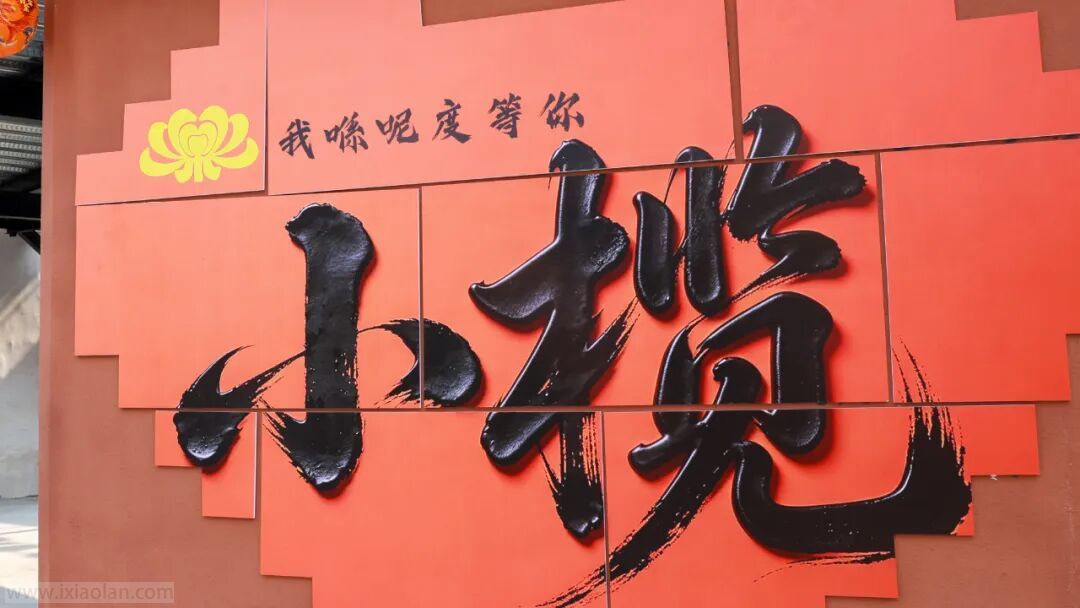 我喺呢度等你
小榄
www.ixiaolan.com